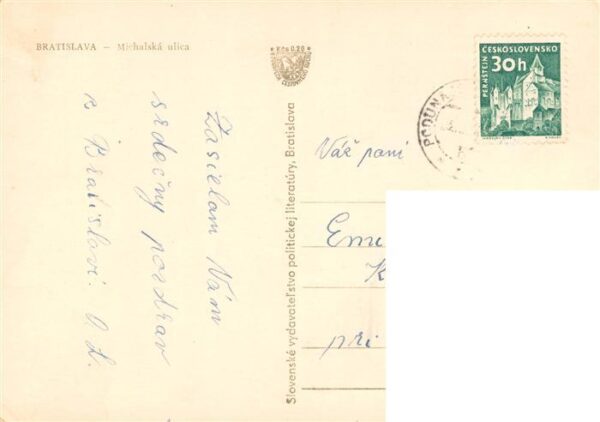 BRATISLAVA – Michalská ulica
Kčs 0,20
Zasielam Vám
srdečný pozdrav
z Bratislavi. O. L.
Slovenské vydavateľstvo politickej literatúry, Bratislava
PODUNA
PERNŠTEJN
ČESKOSLOVENSKO
30h
Váž pani
Eme
K
pri